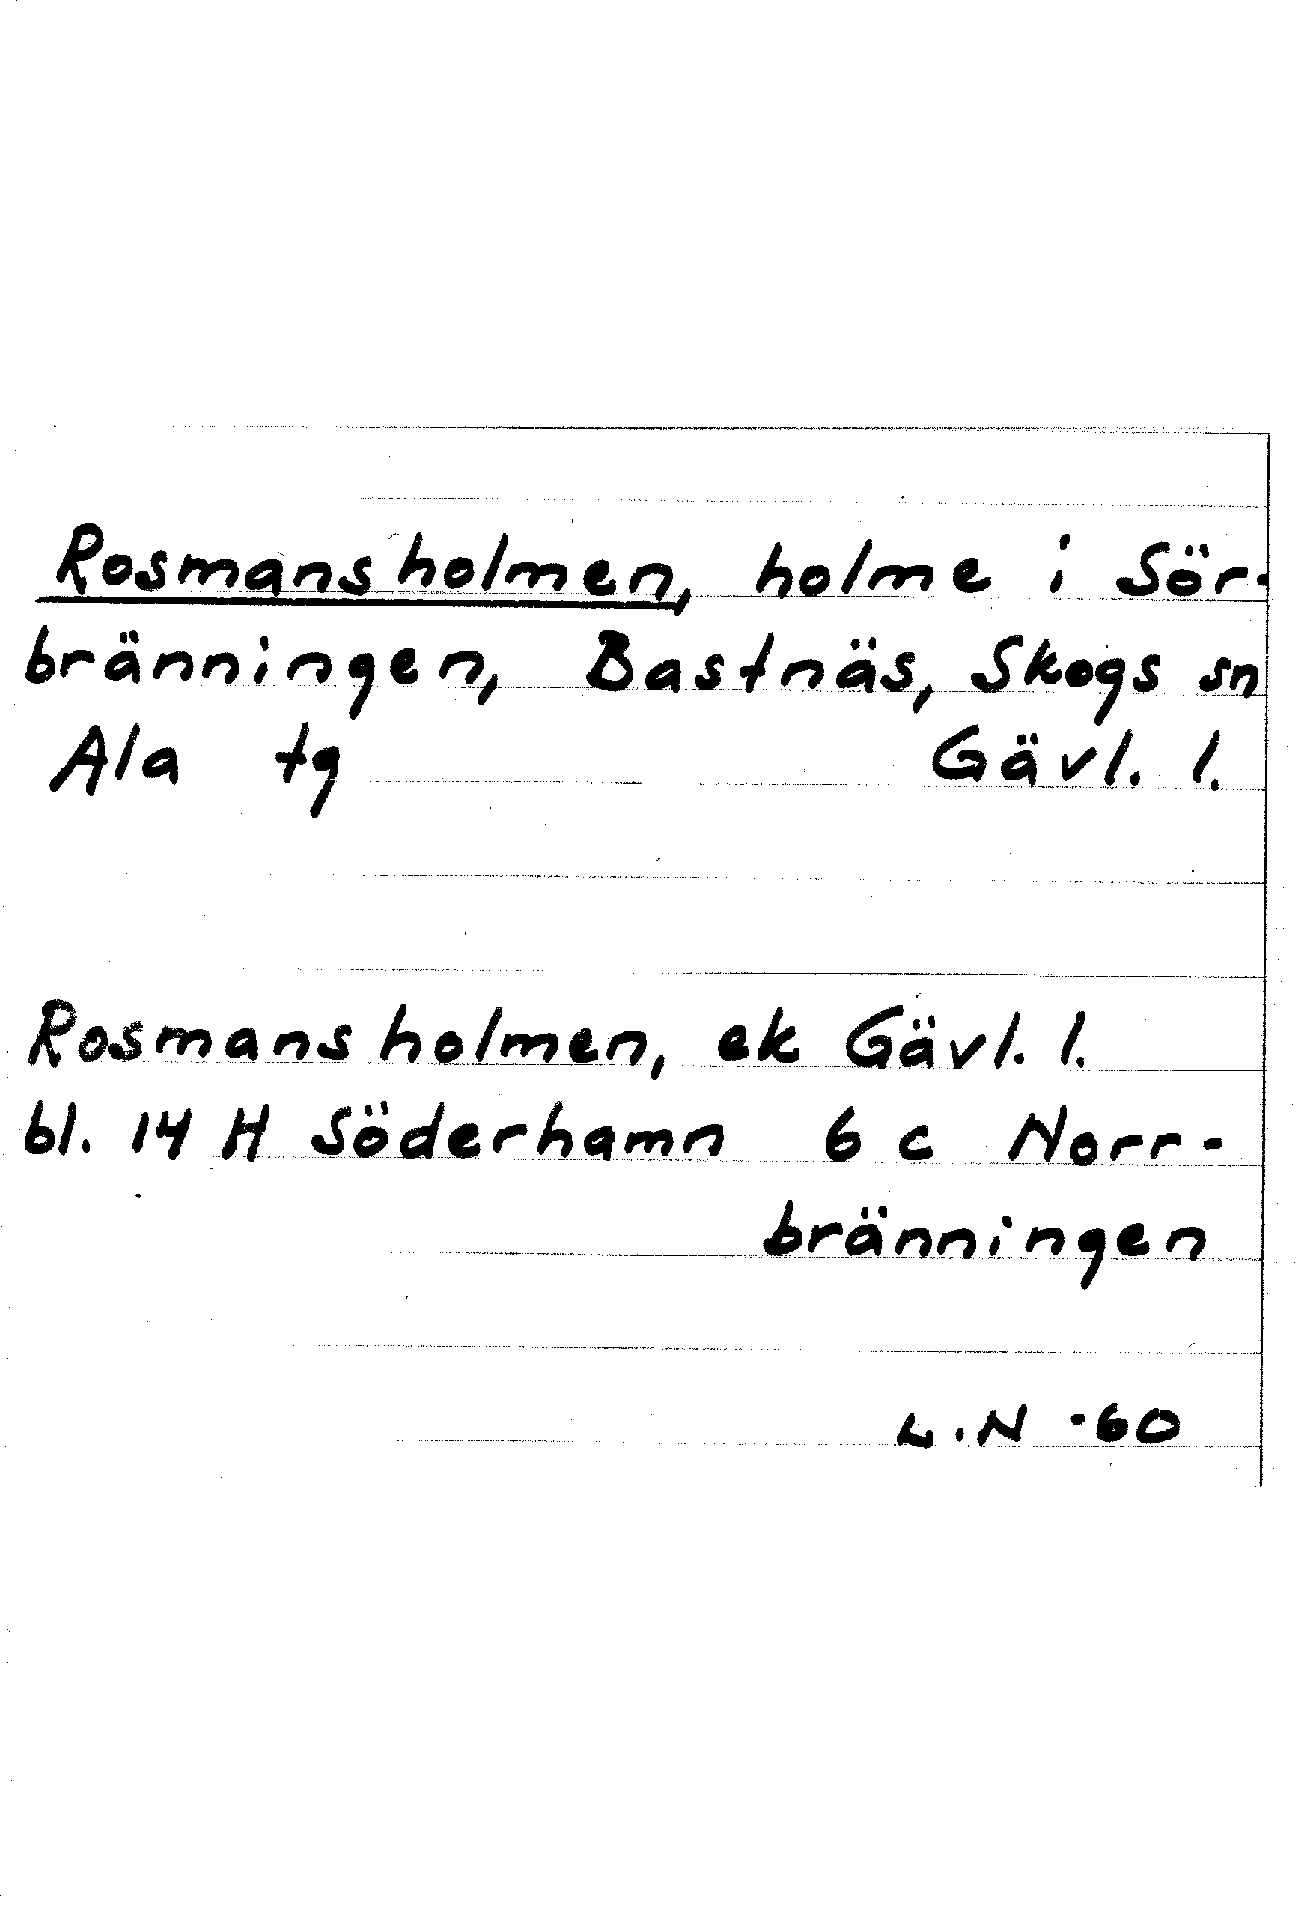 Rosmansholmen, holme i Sör-
bränningen, Bastnäs, Skogs sn
Ala tg Gävl. l.
Rosmansholmen, ek Gävl. l.
bl. 14 H Söderhamn 6 c Norr-
bränningen
L.N -60